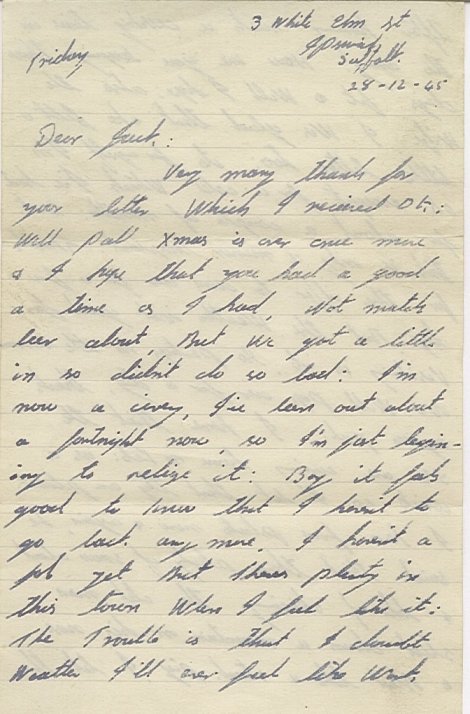 3 White Elm St
Ipswich
Friday Suffolk.
28-12-45
Dear Jack.:
Very many thanks for
your letter Which I received OK:
Well Pall Xmas is over once more
& I hope that you had a good
a time as I had, Not much
beer about, But we got a little
in so didn't do so bad: I'm
now a civvy, I've been out about
a fortnight now, so I'm just begin-
ing to relize it: Boy it feels
good to know that I havn't to
go back any more, I havn't a
job yet But theres plenty in
this town When I feel like it:
The Trouble is that I doubt
Weather I'll ever feel like Work.